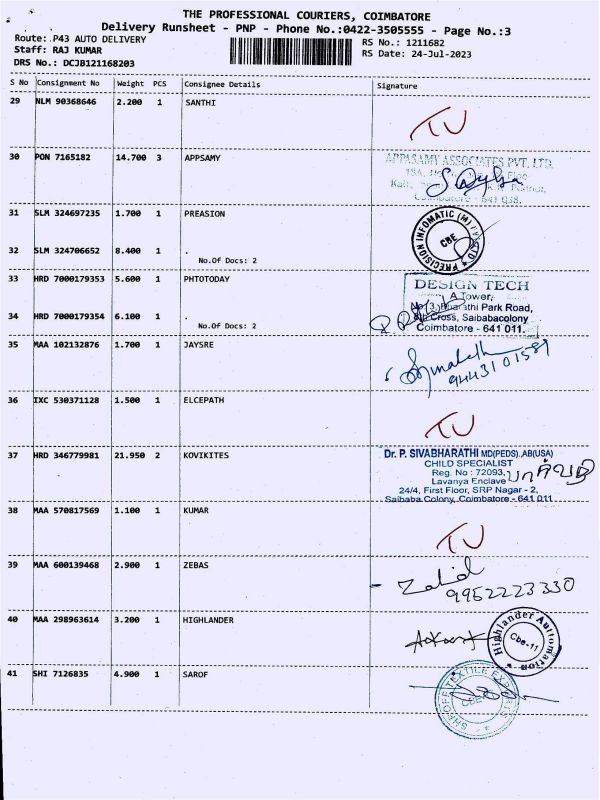 THE PROFESSIONAL COURIERS, COIMBATORE
Delivery Runsheet - PNP - Phone No.:0422-3505555 - Page No.:3
Route: P43 AUTO DELIVERY
RS No.: 1211682
Staff: RAJ KUMAR
RS Date: 24-Jul-2023
DRS No.: DCJB121168203
S No Consignment No Weight PCS Consignee Details Signature
29 NLM 90368646 2.200 1 SANTHI
TU
30 PON 7165182 14.700 3 APPSAMY
APPASAMY ASSOCIATES PVT. LTD.
Coimbatore - 641 038.
31 SLM 324697235 1.700 1 PREASION
PRECISION INFOMATIC (M) PVT LTD
CBE
32 SLM 324706652 8.400 1 .
No.Of Docs: 2
33 HRD 7000179353 5.600 1 PHTOTODAY
DESIGN TECH
A Tower,
No(3) Bharathi Park Road,
34 HRD 7000179354 6.100 1 .
Cross, Saibabacolony
No.Of Docs: 2
Coimbatore - 641 011.
35 MAA 102132876 1.700 1 JAYSRE
9443101589
36 IXC 530371128 1.500 1 ELCEPATH
TU
37 HRD 346779981 21.950 2 KOVIKITES
Dr. P. SIVABHARATHI MD(PEDS).,AB(USA)
CHILD SPECIALIST
Reg. No : 72093,
Lavanya Enclave
24/4, First Floor, SRP Nagar - 2,
Saibaba Colony, Coimbatore - 641 011.
38 MAA 570817569 1.100 1 KUMAR
TU
39 MAA 600139468 2.900 1 ZEBAS
Zahid
9952223330
40 MAA 298963614 3.200 1 HIGHLANDER
Highlander Automation
Cbe-11
41 SHI 7126835 4.900 1 SAROF
CBE